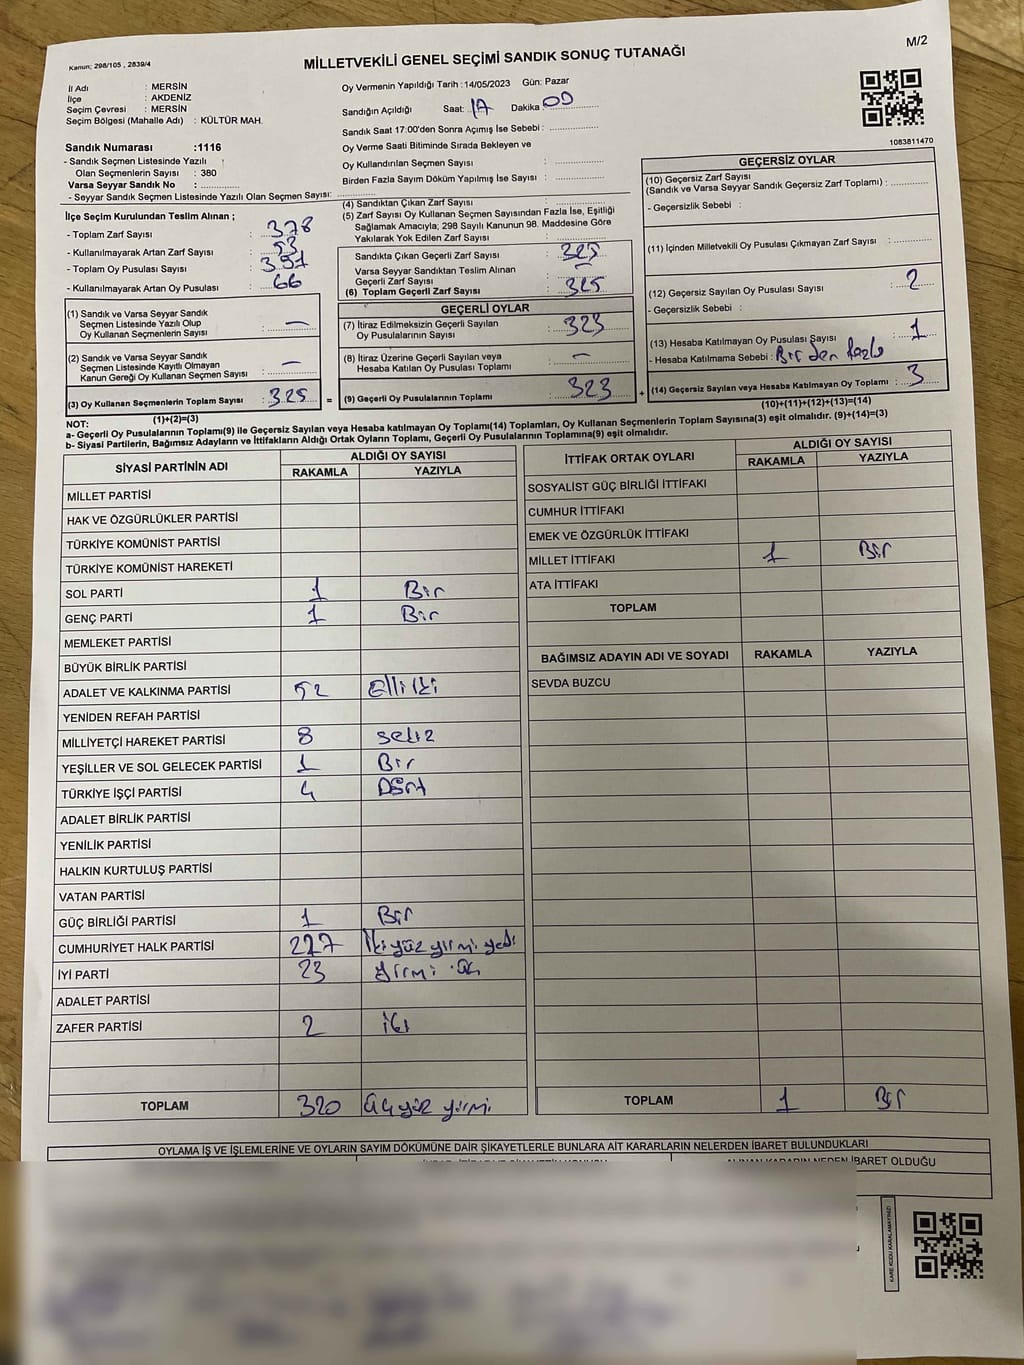 Kanun; 298/105 , 2839/4
MİLLETVEKİLİ GENEL SEÇİMİ SANDIK SONUÇ TUTANAĞI
M/2
İl Adı : MERSİN
İlçe : AKDENİZ
Seçim Çevresi : MERSİN
Seçim Bölgesi (Mahalle Adı) : KÜLTÜR MAH.
Sandık Numarası :1116
- Sandık Seçmen Listesinde Yazılı
Olan Seçmenlerin Sayısı : 380
Varsa Seyyar Sandık No :
- Seyyar Sandık Seçmen Listesinde Yazılı Olan Seçmen Sayısı:
Oy Vermenin Yapıldığı Tarih : 14/05/2023 Gün: Pazar
Sandığın Açıldığı Saat: 17 Dakika 00
Sandık Saat 17:00'den Sonra Açımış İse Sebebi :
Oy Verme Saati Bitiminde Sırada Bekleyen ve
Oy Kullandırılan Seçmen Sayısı :
Birden Fazla Sayım Döküm Yapılmış İse Sayısı :
1083811470
İlçe Seçim Kurulundan Teslim Alınan ;
- Toplam Zarf Sayısı : 378
- Kullanılmayarak Artan Zarf Sayısı : 53
- Toplam Oy Pusulası Sayısı : 391
- Kullanılmayarak Artan Oy Pusulası : 66
(1) Sandık ve Varsa Seyyar Sandık
Seçmen Listesinde Yazılı Olup
Oy Kullanan Seçmenlerin Sayısı : —
(2) Sandık ve Varsa Seyyar Sandık
Seçmen Listesinde Kayıtlı Olmayan
Kanun Gereği Oy Kullanan Seçmen Sayısı : —
(3) Oy Kullanan Seçmenlerin Toplam Sayısı : 325 =
(1)+(2)=(3)
(4) Sandıktan Çıkan Zarf Sayısı :
(5) Zarf Sayısı Oy Kullanan Seçmen Sayısından Fazla İse, Eşitliği
Sağlamak Amacıyla; 298 Sayılı Kanunun 98. Maddesine Göre
Yakılarak Yok Edilen Zarf Sayısı :
Sandıkta Çıkan Geçerli Zarf Sayısı : 325
Varsa Seyyar Sandıktan Teslim Alınan
Geçerli Zarf Sayısı : —
(6) Toplam Geçerli Zarf Sayısı : 325
GEÇERLİ OYLAR
(7) İtiraz Edilmeksizin Geçerli Sayılan
Oy Pusulalarının Sayısı : 323
(8) İtiraz Üzerine Geçerli Sayılan veya
Hesaba Katılan Oy Pusulası Toplamı : —
(9) Geçerli Oy Pusulalarının Toplamı : 323 +
GEÇERSİZ OYLAR
(10) Geçersiz Zarf Sayısı
(Sandık ve Varsa Seyyar Sandık Geçersiz Zarf Toplamı) :
- Geçersizlik Sebebi :
(11) İçinden Milletvekili Oy Pusulası Çıkmayan Zarf Sayısı :
(12) Geçersiz Sayılan Oy Pusulası Sayısı : 2
- Geçersizlik Sebebi :
(13) Hesaba Katılmayan Oy Pusulası Sayısı : 1
- Hesaba Katılmama Sebebi : Birden fazla
(14) Geçersiz Sayılan veya Hesaba Katılmayan Oy Toplamı : 3
(10)+(11)+(12)+(13)=(14)
NOT:
a- Geçerli Oy Pusulalarının Toplamı(9) ile Geçersiz Sayılan veya Hesaba katılmayan Oy Toplamı(14) Toplamları, Oy Kullanan Seçmenlerin Toplam Sayısına(3) eşit olmalıdır. (9)+(14)=(3)
b- Siyasi Partilerin, Bağımsız Adayların ve İttifakların Aldığı Ortak Oyların Toplamı, Geçerli Oy Pusulalarının Toplamına(9) eşit olmalıdır.
SİYASİ PARTİNİN ADI ALDIĞI OY SAYISI
RAKAMLA YAZIYLA
MİLLET PARTİSİ
HAK VE ÖZGÜRLÜKLER PARTİSİ
TÜRKİYE KOMÜNİST PARTİSİ
TÜRKİYE KOMÜNİST HAREKETİ
SOL PARTİ 1 Bir
GENÇ PARTİ 1 Bir
MEMLEKET PARTİSİ
BÜYÜK BİRLİK PARTİSİ
ADALET VE KALKINMA PARTİSİ 52 Elli iki
YENİDEN REFAH PARTİSİ
MİLLİYETÇİ HAREKET PARTİSİ 8 sekiz
YEŞİLLER VE SOL GELECEK PARTİSİ 1 Bir
TÜRKİYE İŞÇİ PARTİSİ 4 Dört
ADALET BİRLİK PARTİSİ
YENİLİK PARTİSİ
HALKIN KURTULUŞ PARTİSİ
VATAN PARTİSİ
GÜÇ BİRLİĞİ PARTİSİ 1 Bir
CUMHURİYET HALK PARTİSİ 227 İkiyüz yirmi yedi
İYİ PARTİ 23 yirmi üç
ADALET PARTİSİ
ZAFER PARTİSİ 2 iki
TOPLAM 320 üçyüz yirmi
İTTİFAK ORTAK OYLARI ALDIĞI OY SAYISI
RAKAMLA YAZIYLA
SOSYALİST GÜÇ BİRLİĞİ İTTİFAKI
CUMHUR İTTİFAKI
EMEK VE ÖZGÜRLÜK İTTİFAKI
MİLLET İTTİFAKI 1 Bir
ATA İTTİFAKI
TOPLAM
BAĞIMSIZ ADAYIN ADI VE SOYADI RAKAMLA YAZIYLA
SEVDA BUZCU
TOPLAM 1 Bir
OYLAMA İŞ VE İŞLEMLERİNE VE OYLARIN SAYIM DÖKÜMÜNE DAİR ŞİKAYETLERLE BUNLARA AİT KARARLARIN NELERDEN İBARET BULUNDUKLARI
ALINAN KARARIN NEDEN İBARET OLDUĞU
KARE KODU KARALAMAYINIZ!